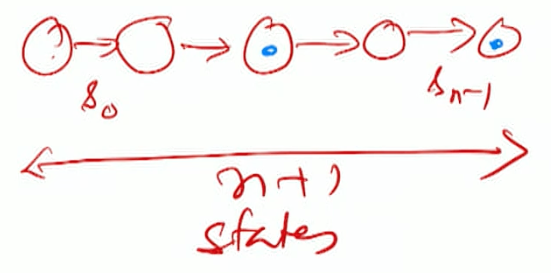 s₀ sₙ₋₁
n+1
states